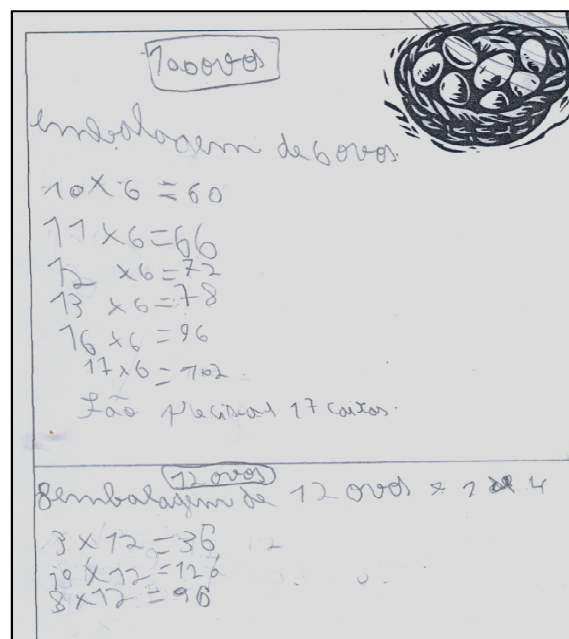 100 ovos
embalagem de 6 ovos.
10 x 6 = 60
11 x 6 = 66
12 x 6 = 72
13 x 6 = 78
16 x 6 = 96
17 x 6 = 102.
São 17 caixas.
12 ovos
8 embalagem de 12 ovos 4
3 x 12 = 36
10 x 12 = 120
8 x 12 = 96